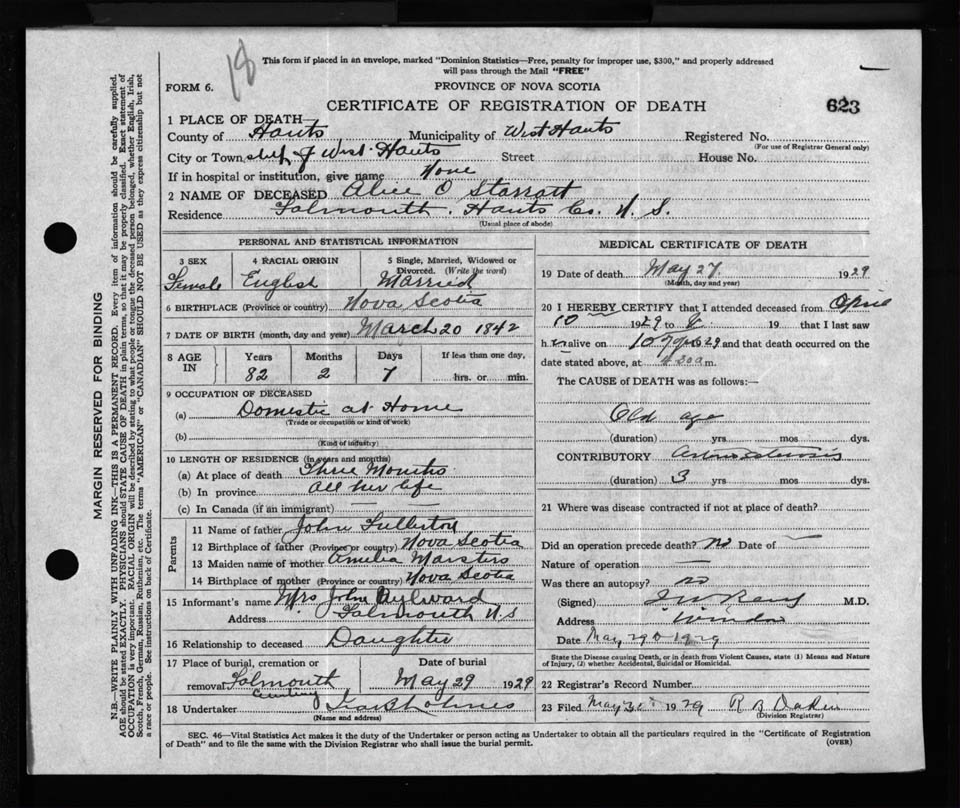 18
This form if placed in an envelope, marked "Dominion Statistics—Free, penalty for improper use, $300," and properly addressed
will pass through the Mail "FREE"
FORM 6.
PROVINCE OF NOVA SCOTIA
CERTIFICATE OF REGISTRATION OF DEATH
623
1 PLACE OF DEATH—
County of Hants Municipality of West Hants Registered No.
(For use of Registrar General only)
City or Town of West Hants Street House No.
If in hospital or institution, give name None
2 NAME OF DECEASED Alice O Starratt
Residence Falmouth. Hants Co. N. S.
(Usual place of abode)
PERSONAL AND STATISTICAL INFORMATION
3 SEX 4 RACIAL ORIGIN 5 Single, Married, Widowed or
Divorced. (Write the word)
Female English Married
6 BIRTHPLACE (Province or country) Nova Scotia
7 DATE OF BIRTH (month, day and year) March 20 1842
8 AGE IN Years Months Days If less than one day,
82 2 7 hrs. or min.
9 OCCUPATION OF DECEASED
(a) Domestic at Home
(Trade or occupation or kind of work)
(b)
(Kind of industry)
10 LENGTH OF RESIDENCE (in years and months)
(a) At place of death Three Months
(b) In province all her life
(c) In Canada (if an immigrant)
Parents
11 Name of father John Fullerton
12 Birthplace of father (Province or country) Nova Scotia
13 Maiden name of mother Amelia Marsters
14 Birthplace of mother (Province or country) Nova Scotia
15 Informant's name Mrs John Aylward
Address Falmouth N S
16 Relationship to deceased Daughter
17 Place of burial, cremation or Date of burial
removal Falmouth May 29 1929
18 Undertaker
(Name and address)
MEDICAL CERTIFICATE OF DEATH
19 Date of death May 27. 1929
(Month, day and year)
20 I HEREBY CERTIFY that I attended deceased from April
10 1929 to 19 that I last saw
h alive on 1929 and that death occurred on the
date stated above, at 4 30 a m.
The CAUSE of DEATH was as follows:—
Old age
(duration) yrs mos dys.
CONTRIBUTORY
(duration) 3 yrs mos dys.
21 Where was disease contracted if not at place of death?
Did an operation precede death? no Date of
Nature of operation
Was there an autopsy? no
(Signed) M.D.
Address Windsor
Date May 29 1929
State the Disease causing Death, or in death from Violent Causes, state (1) Means and Nature
of Injury, (2) whether Accidental, Suicidal or Homicidal.
22 Registrar's Record Number
23 Filed May 1929
(Division Registrar)
SEC. 46—Vital Statistics Act makes it the duty of the Undertaker or person acting as Undertaker to obtain all the particulars required in the "Certificate of Registration
of Death" and to file the same with the Division Registrar who shall issue the burial permit. (OVER)
MARGIN RESERVED FOR BINDING
N.B.—WRITE PLAINLY WITH UNFADING INK—THIS IS A PERMANENT RECORD. Every item of information should be carefully supplied.
AGE should be stated EXACTLY. PHYSICIANS should STATE CAUSE OF DEATH in plain terms, so that it may be properly classified. Exact statement of
OCCUPATION is very important. RACIAL ORIGIN will be described by stating to what people or tongue the deceased person belonged, whether English, Irish,
Scotch, French, German, Russian, Ruthenian, etc. The terms "AMERICAN" or "CANADIAN" SHOULD NOT BE USED as they express citizenship but not
a race or people. See instructions on back of Certificate.